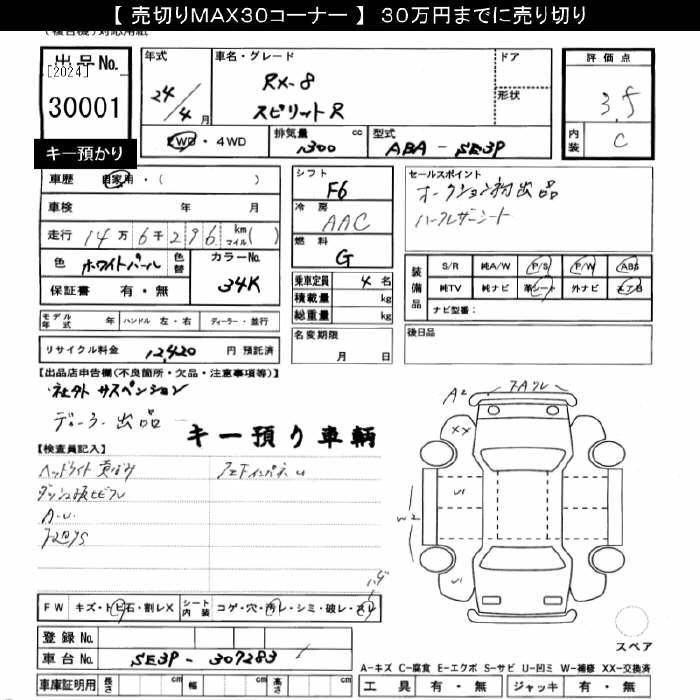 【 売切りMAX30コーナー 】 30万円までに売り切り
出品No.
[2024]
30001
キー預かり
年式
24/4月
車名・グレード
RX-8
スピリットR
ドア
形状
評価点
3.5
内装
C
2WD・4WD
排気量
1300
cc
型式
ABA - SE3P
車歴
自家用・( )
車検 年 月
走行 14万 6千 296 km マイル( )
色
ホワイトパール
色替
カラーNo.
34K
保証書 有・無
シフト
F6
冷房
AAC
燃料
G
乗車定員 4名
積載量 kg
総重量 kg
セールスポイント
オークション初出品
ハーフレザーシート
装備品
S/R 純A/W P/S P/W ABS
純TV 純ナビ 革シート 外ナビ エアB
ナビ型番:
モデル年式 年 ハンドル 左・右 ディーラー・並行
リサイクル料金 12,420 円 預託済
名変期限
月 日
後日品
【出品店申告欄(不良箇所・欠品・注意事項等)】
社外サスペンション
ディーラー出品
キー預り車輌
【検査員記入】
ヘッドライト黄ばみ
A-U
A2
XX
W2
U
U
FW キズ・トビ石・割レX
シート内装 コゲ・穴・汚レ・シミ・破レ・スレ
登録No.
車台No. SE3P - 307283
スペア
A-キズ C-腐食 E-エクボ S-サビ U-凹ミ W-補修 XX-交換済
車庫証明用 長さ cm 幅 cm 高さ cm
工具 有・無 ジャッキ 有・無